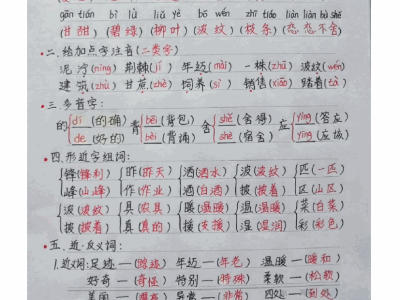 gān tián bì lǜ liǔ yè bō wén zhī tiáo liàn liàn bù shě
(甘甜) (碧绿) (柳叶) (波纹) (枝条) (恋恋不舍)
二、给加点字注音(二类字)
泥泞(nìng) 荆棘(jí) 年迈(mài) 一株(zhū) 波纹(wén)
建筑(zhù) 甘蔗(zhè) 饲养(sì) 销售(xiāo) 踏着(tà)
三、多音字:
的 dí (的确) 背 bēi (背包) 舍 shě (舍得) 应 yìng (答应)
de (好的) bèi (背诵) shè (宿舍) yīng (应该)
四、形近字组词:
锋(锋利) 昨(昨天) 洒(洒水) 波(波纹) 匹(一匹)
峰(山峰) 作(作业) 酒(白酒) 披(披着) 区(山区)
波(波纹) 具(农具) 暖(温暖) 温(温暖) 菜(白菜)
披(披着) 真(真的) 援(支援) 湿(湿润) 彩(彩色)
五、近、反义词:
1.近义词:足迹—(踪迹) 年迈—(年老) 温暖—(暖和)
好奇—(奇怪) 特别—(特殊) 柔软—(松软)
异常—(非常) 四处—(到处)